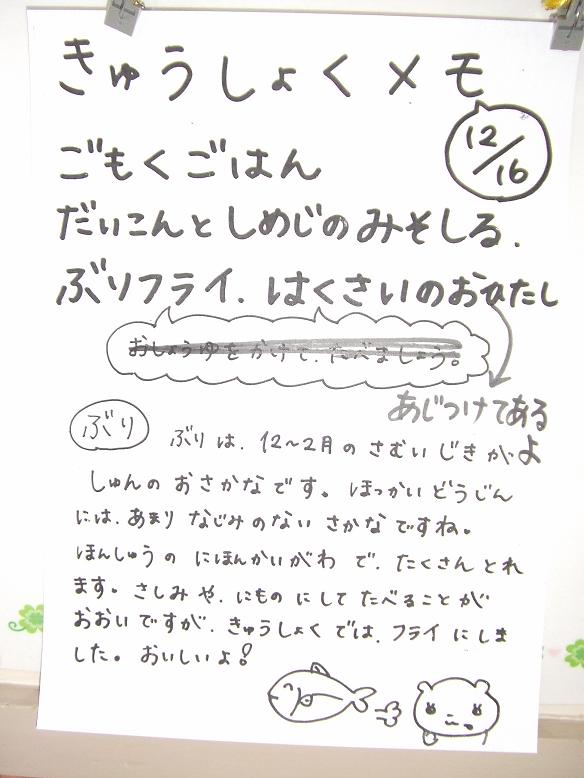 きゅうしょくメモ
12/16
ごもくごはん
だいこんとしめじのみそしる.
ぶりフライ. はくさいのおひたし
おしょうゆをかけて、たべましょう。
あじつけてある
よ
ぶり
ぶりは、12〜2月のさむいじきが
しゅんのおさかなです。ほっかいどうじん
には、あまりなじみのないさかなですね。
ほんしゅうのにほんかいがわで、たくさんとれ
ます。さしみや、にものにしてたべることが
おおいですが、きゅうしょくでは、フライにしま
した。おいしいよ!